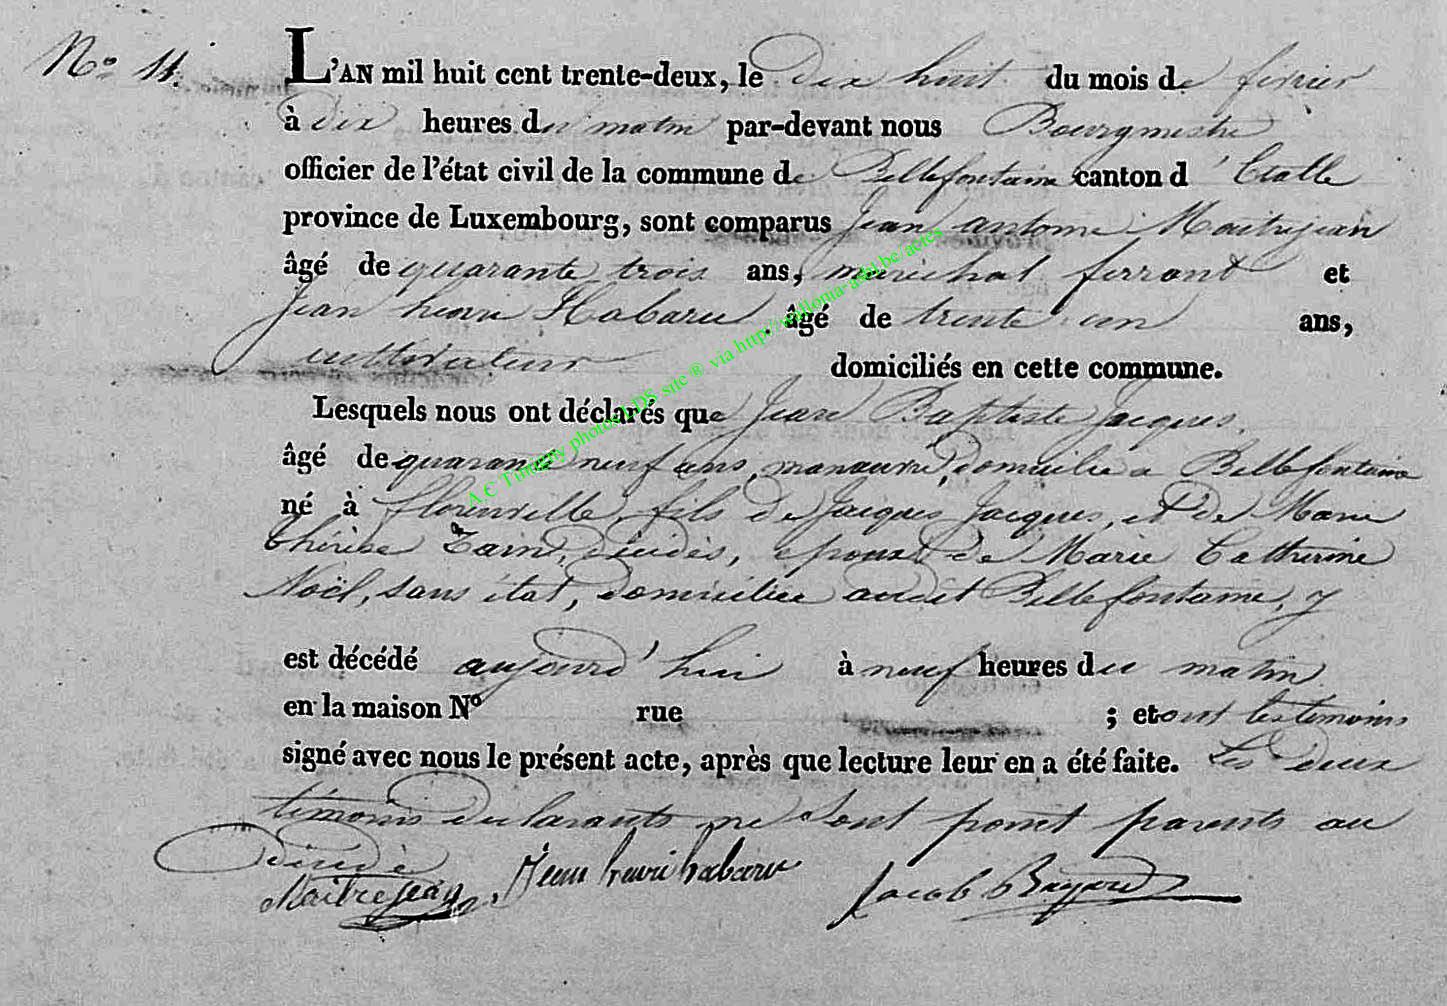 N° 11.
L'AN mil huit cent trente-deux, le dix huit du mois de fevrier
à dix heures du matin par-devant nous Bourgmestre
officier de l'état civil de la commune de Bellefontaine canton d'Etalle
province de Luxembourg, sont comparus Jean antoine Maitrejean
âgé de quarante trois ans, maréchal ferrant et
Jean henri Habaru, âgé de trente un ans,
cultivateur domiciliés en cette commune.
Lesquels nous ont déclarés que Jean Baptiste Jacques,
âgé de quarante neuf ans, manœuvre, domicilié a Bellefontaine
né à florenville, fils de Jacques Jacques, et de Marie
Thérèse Zaine, décédés, epoux de Marie Catherine
Noël, sans état, domiciliée audit Bellefontaine, y
est décédé aujourd'hui à neuf heures du matin
en la maison N° rue ; et ont les temoins
signé avec nous le présent acte, après que lecture leur en a été faite. Les deux
témoins declarants ne sont point parents au
décédé
Maitrejean. Jean henri habaru Jacob Bayard
A.C Tintigny photos LDS site ® via http://wallonia-asbl.be/actes